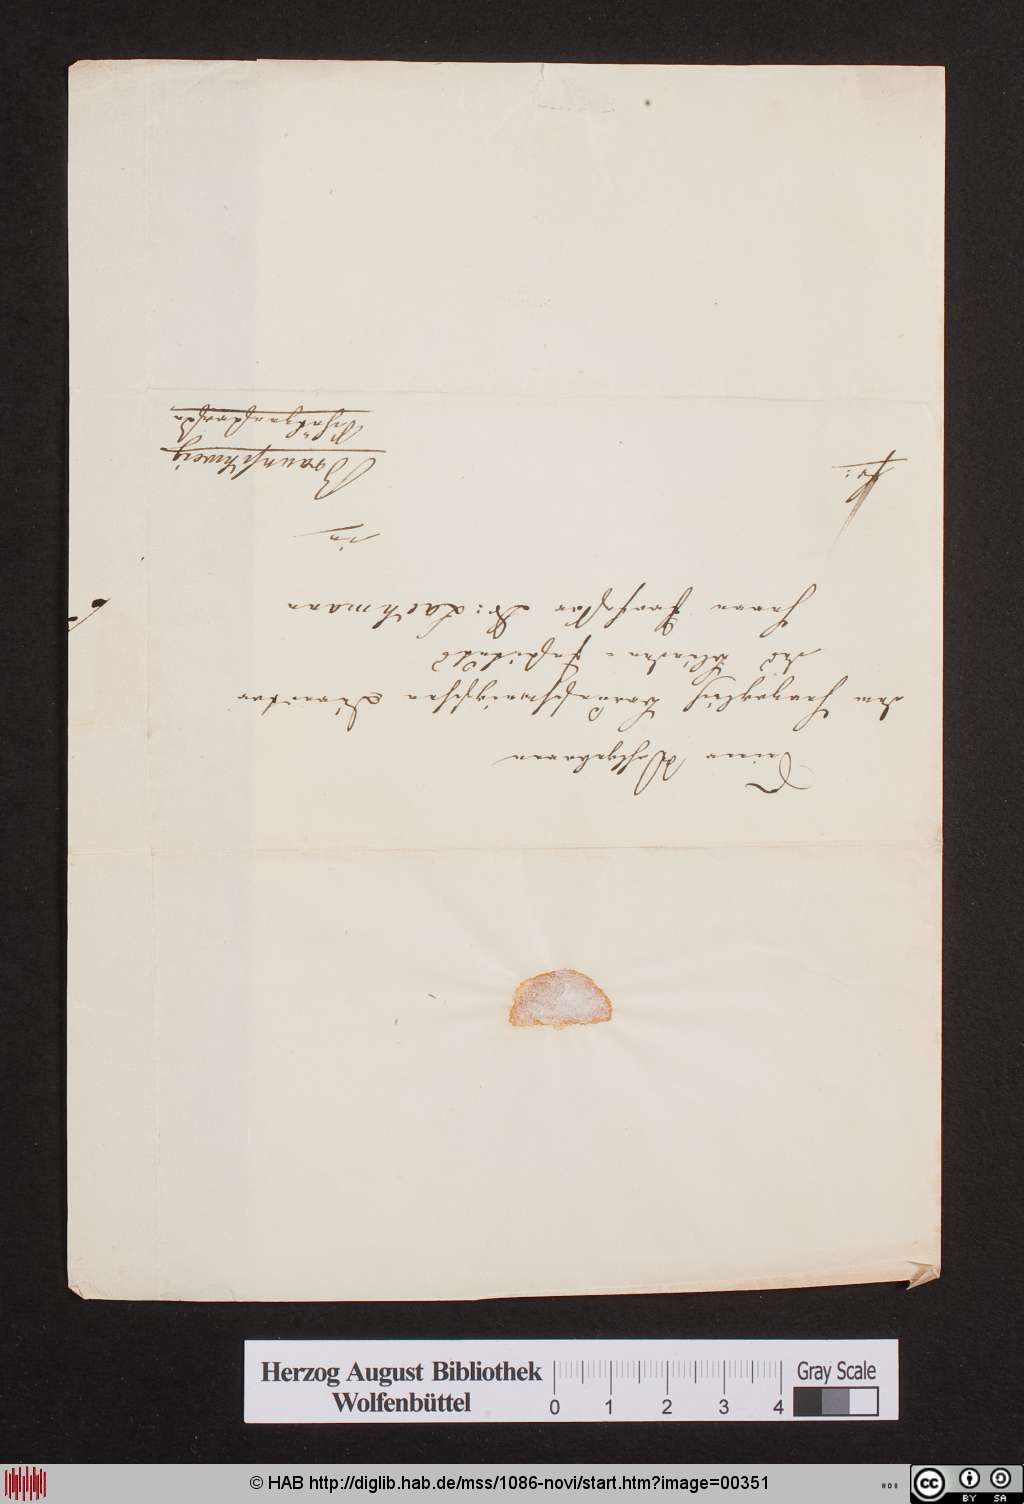 Seiner Wohlgeboren
dem Herzoglich Braunschweigschen Director
des Blinden-Instituts
Herrn Professor Dr: Lachmann
in
Braunschweig
fr:
Herzog August Bibliothek
Wolfenbüttel
0 1 2 3 4
Gray Scale
© HAB http://diglib.hab.de/mss/1086-novi/start.htm?image=00351
cc BY SA